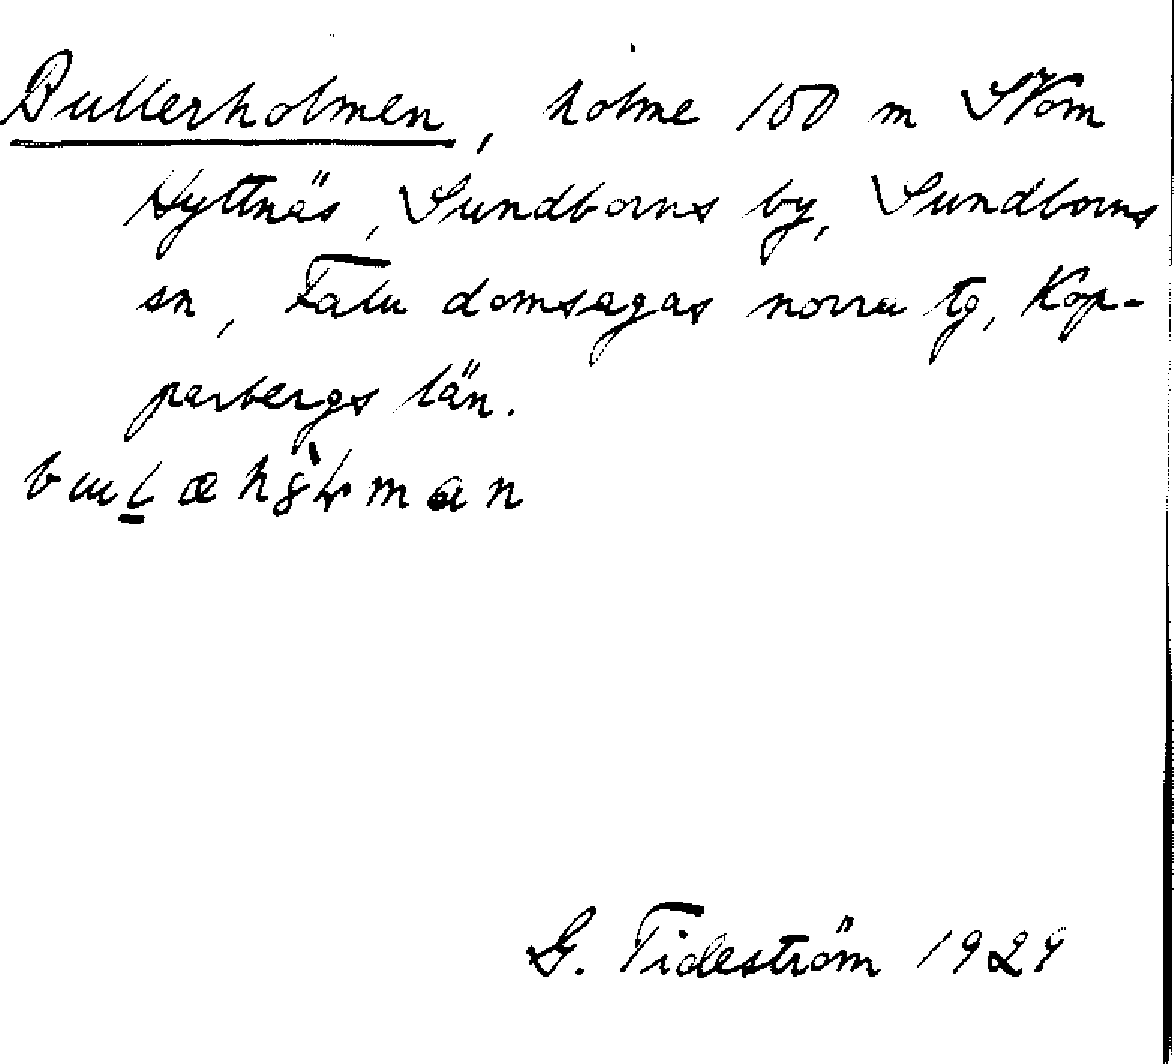 Bullerholmen, holme 100 m SVom
Hyttnäs, Sundborns by, Sundborns
sn, Falu domsagas norra tg, Kop-
parbergs län.
G. Tideström 1929